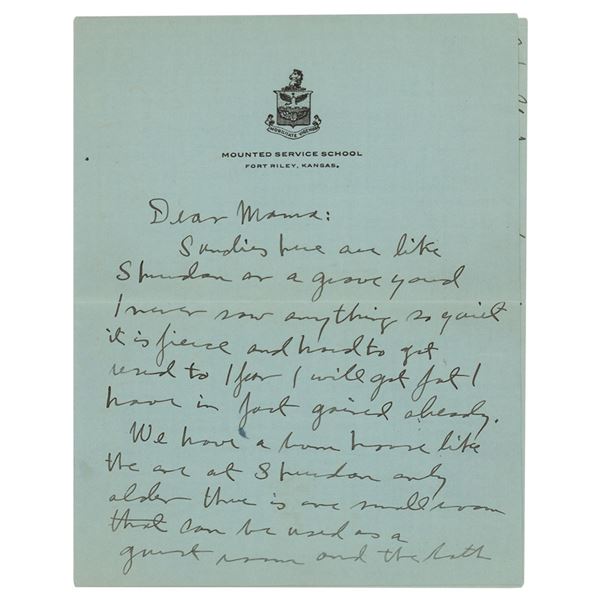 MOBILITATE VIGEMUS
MOUNTED SERVICE SCHOOL
FORT RILEY, KANSAS.
Dear Mama:
Sundies here are like
Sheridan or a grave yard
I never saw anything so quiet
it is fierce and hard to get
used to I fear I will get fat I
have in fact gained already.
We have a house like
the one at Sheridan only
older there is one small room
that can be used as a
guest room and the bath